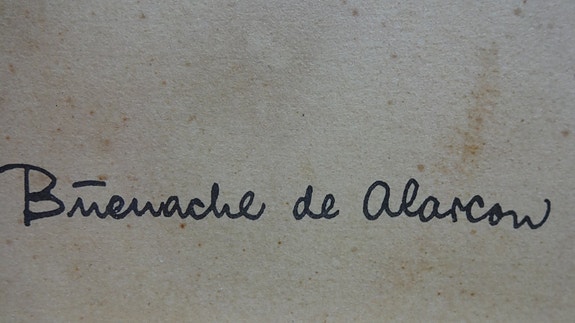 Buenache de Alarcon